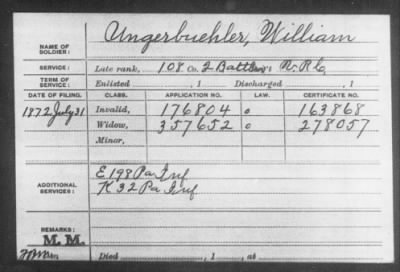 NAME OF SOLDIER: Angerbuehler, William
SERVICE: Late rank, 108 Co. 2 Battln V. R. C.
TERM OF SERVICE: Enlisted , 1 Discharged , 1
DATE OF FILING. CLASS. APPLICATION NO. LAW. CERTIFICATE NO.
1872 July 31 Invalid, 176804 o 163868
Widow, 357652 o 278057
Minor,
ADDITIONAL SERVICES: E 198 Pa Inf
K 32 Pa Inf
REMARKS:
M. M.
Died , 1 , at